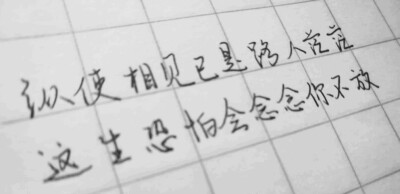 纵使相见已是路人茫茫
这生恐怕会念念你不放